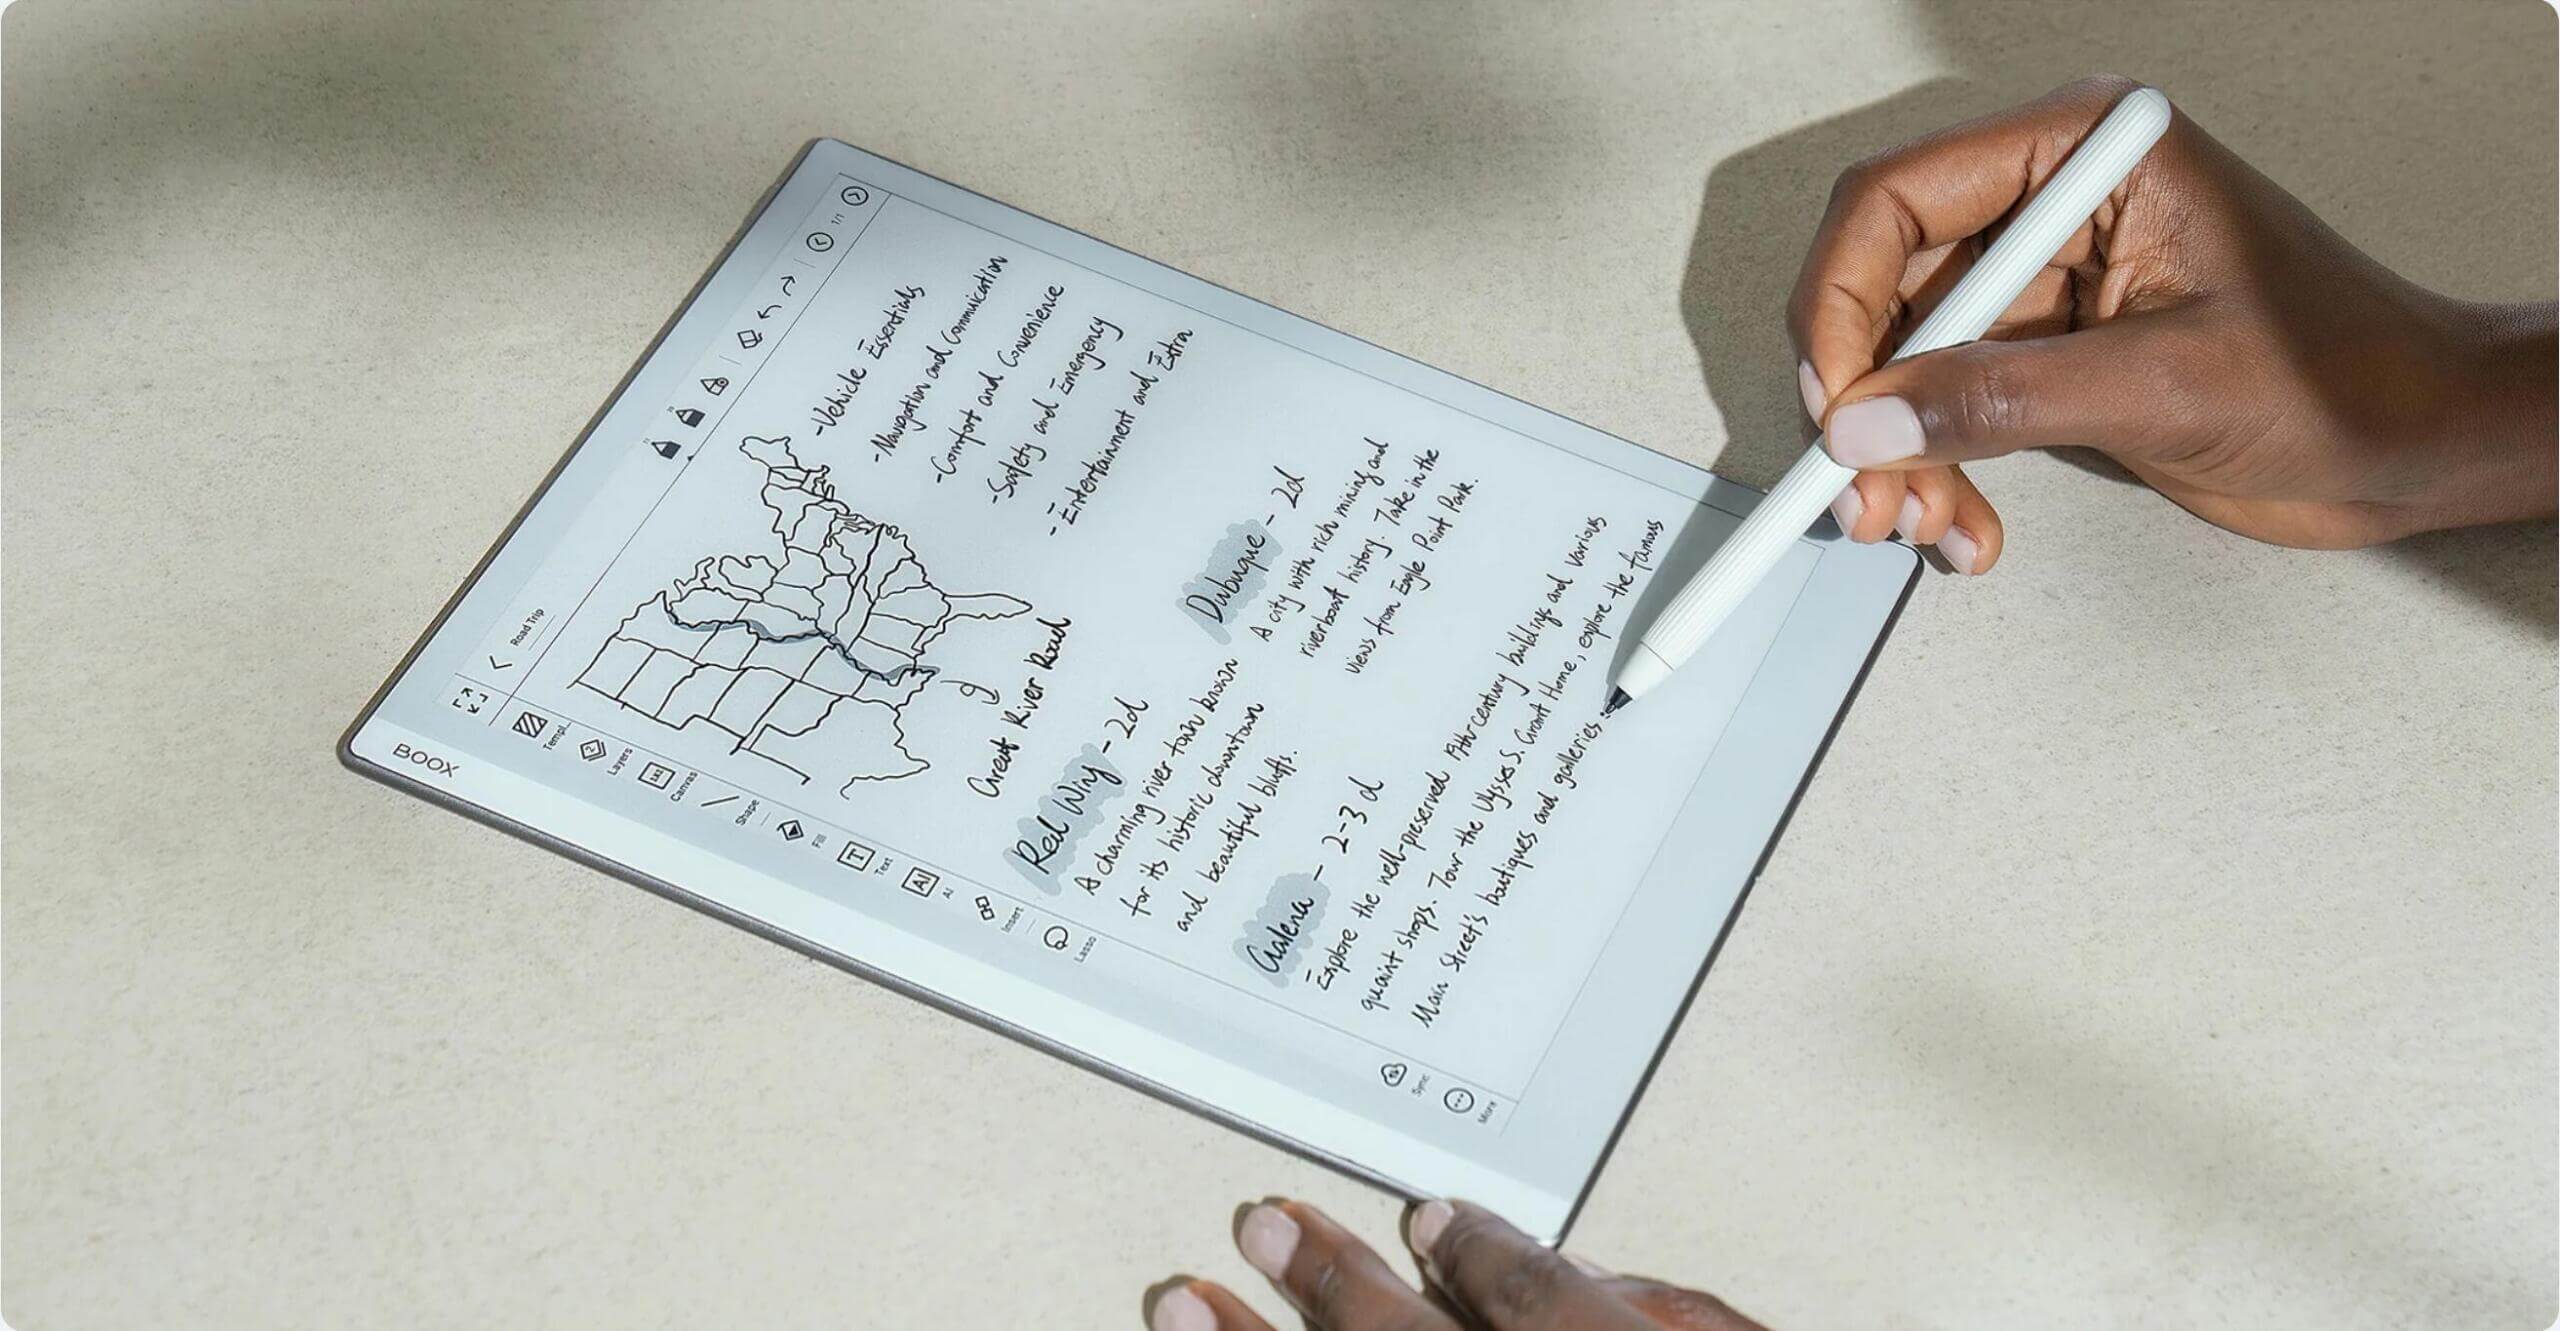 BOOX
Road Trip
1/1
Templ...
Layers
Canvas
Shape
Fill
Text
AI
AI
Insert
Lasso
Sync
More
Great River Road
-Vehicle Essentials
-Navigation and Communication
-Comfort and Convenience
-Safety and Emergency
-Entertainment and Extra
Red Wing - 2d
A charming river town known
for its historic downtown
and beautiful bluffs.
Dubuque - 2d
A city with rich mining and
riverboat history. Take in the
views from Eagle Point Park.
Galena - 2-3 d
Explore the well-preserved 19th-century buildings and various
quaint shops. Tour the Ulysses S. Grant Home, explore the famous
Main Street's boutiques and galleries.